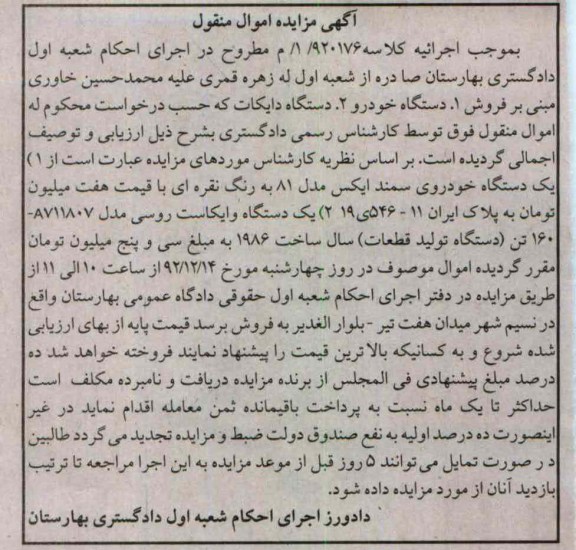 آگهی مزایده اموال منقول
بموجب اجرائیه کلاسه ۹۲۰۱۷۶/ ۱/ م مطروح در اجرای احکام شعبه اول
دادگستری بهارستان صا دره از شعبه اول له زهره قمری علیه محمدحسین خاوری
مبنی بر فروش ۱. دستگاه خودرو ۲. دستگاه دایکات که حسب درخواست محکوم له
اموال منقول فوق توسط کارشناس رسمی دادگستری بشرح ذیل ارزیابی و توصیف
اجمالی گردیده است. بر اساس نظریه کارشناس موردهای مزایده عبارت است از ۱)
یک دستگاه خودروی سمند ایکس مدل ۸۱ به رنگ نقره ای با قیمت هفت میلیون
تومان به پلاک ایران ۱۱ - ۵۴۶ی۱۹ ۲) یک دستگاه وایکاست روسی مدل ۸۷۱۱۸۰۷-
۱۶۰ تن (دستگاه تولید قطعات) سال ساخت ۱۹۸۶ به مبلغ سی و پنج میلیون تومان
مقرر گردیده اموال موصوف در روز چهارشنبه مورخ ۹۲/۱۲/۱۴ از ساعت ۱۰ الی ۱۱ از
طریق مزایده در دفتر اجرای احکام شعبه اول حقوقی دادگاه عمومی بهارستان واقع
در نسیم شهر میدان هفت تیر - بلوار الغدیر به فروش برسد قیمت پایه از بهای ارزیابی
شده شروع و به کسانیکه بالاترین قیمت را پیشنهاد نمایند فروخته خواهد شد ده
درصد مبلغ پیشنهادی فی المجلس از برنده مزایده دریافت و نامبرده مکلف است
حداکثر تا یک ماه نسبت به پرداخت باقیمانده ثمن معامله اقدام نماید در غیر
اینصورت ده درصد اولیه به نفع صندوق دولت ضبط و مزایده تجدید می گردد طالبین
د ر صورت تمایل می توانند ۵ روز قبل از موعد مزایده به این اجرا مراجعه تا ترتیب
بازدید آنان از مورد مزایده داده شود.
دادورز اجرای احکام شعبه اول دادگستری بهارستان